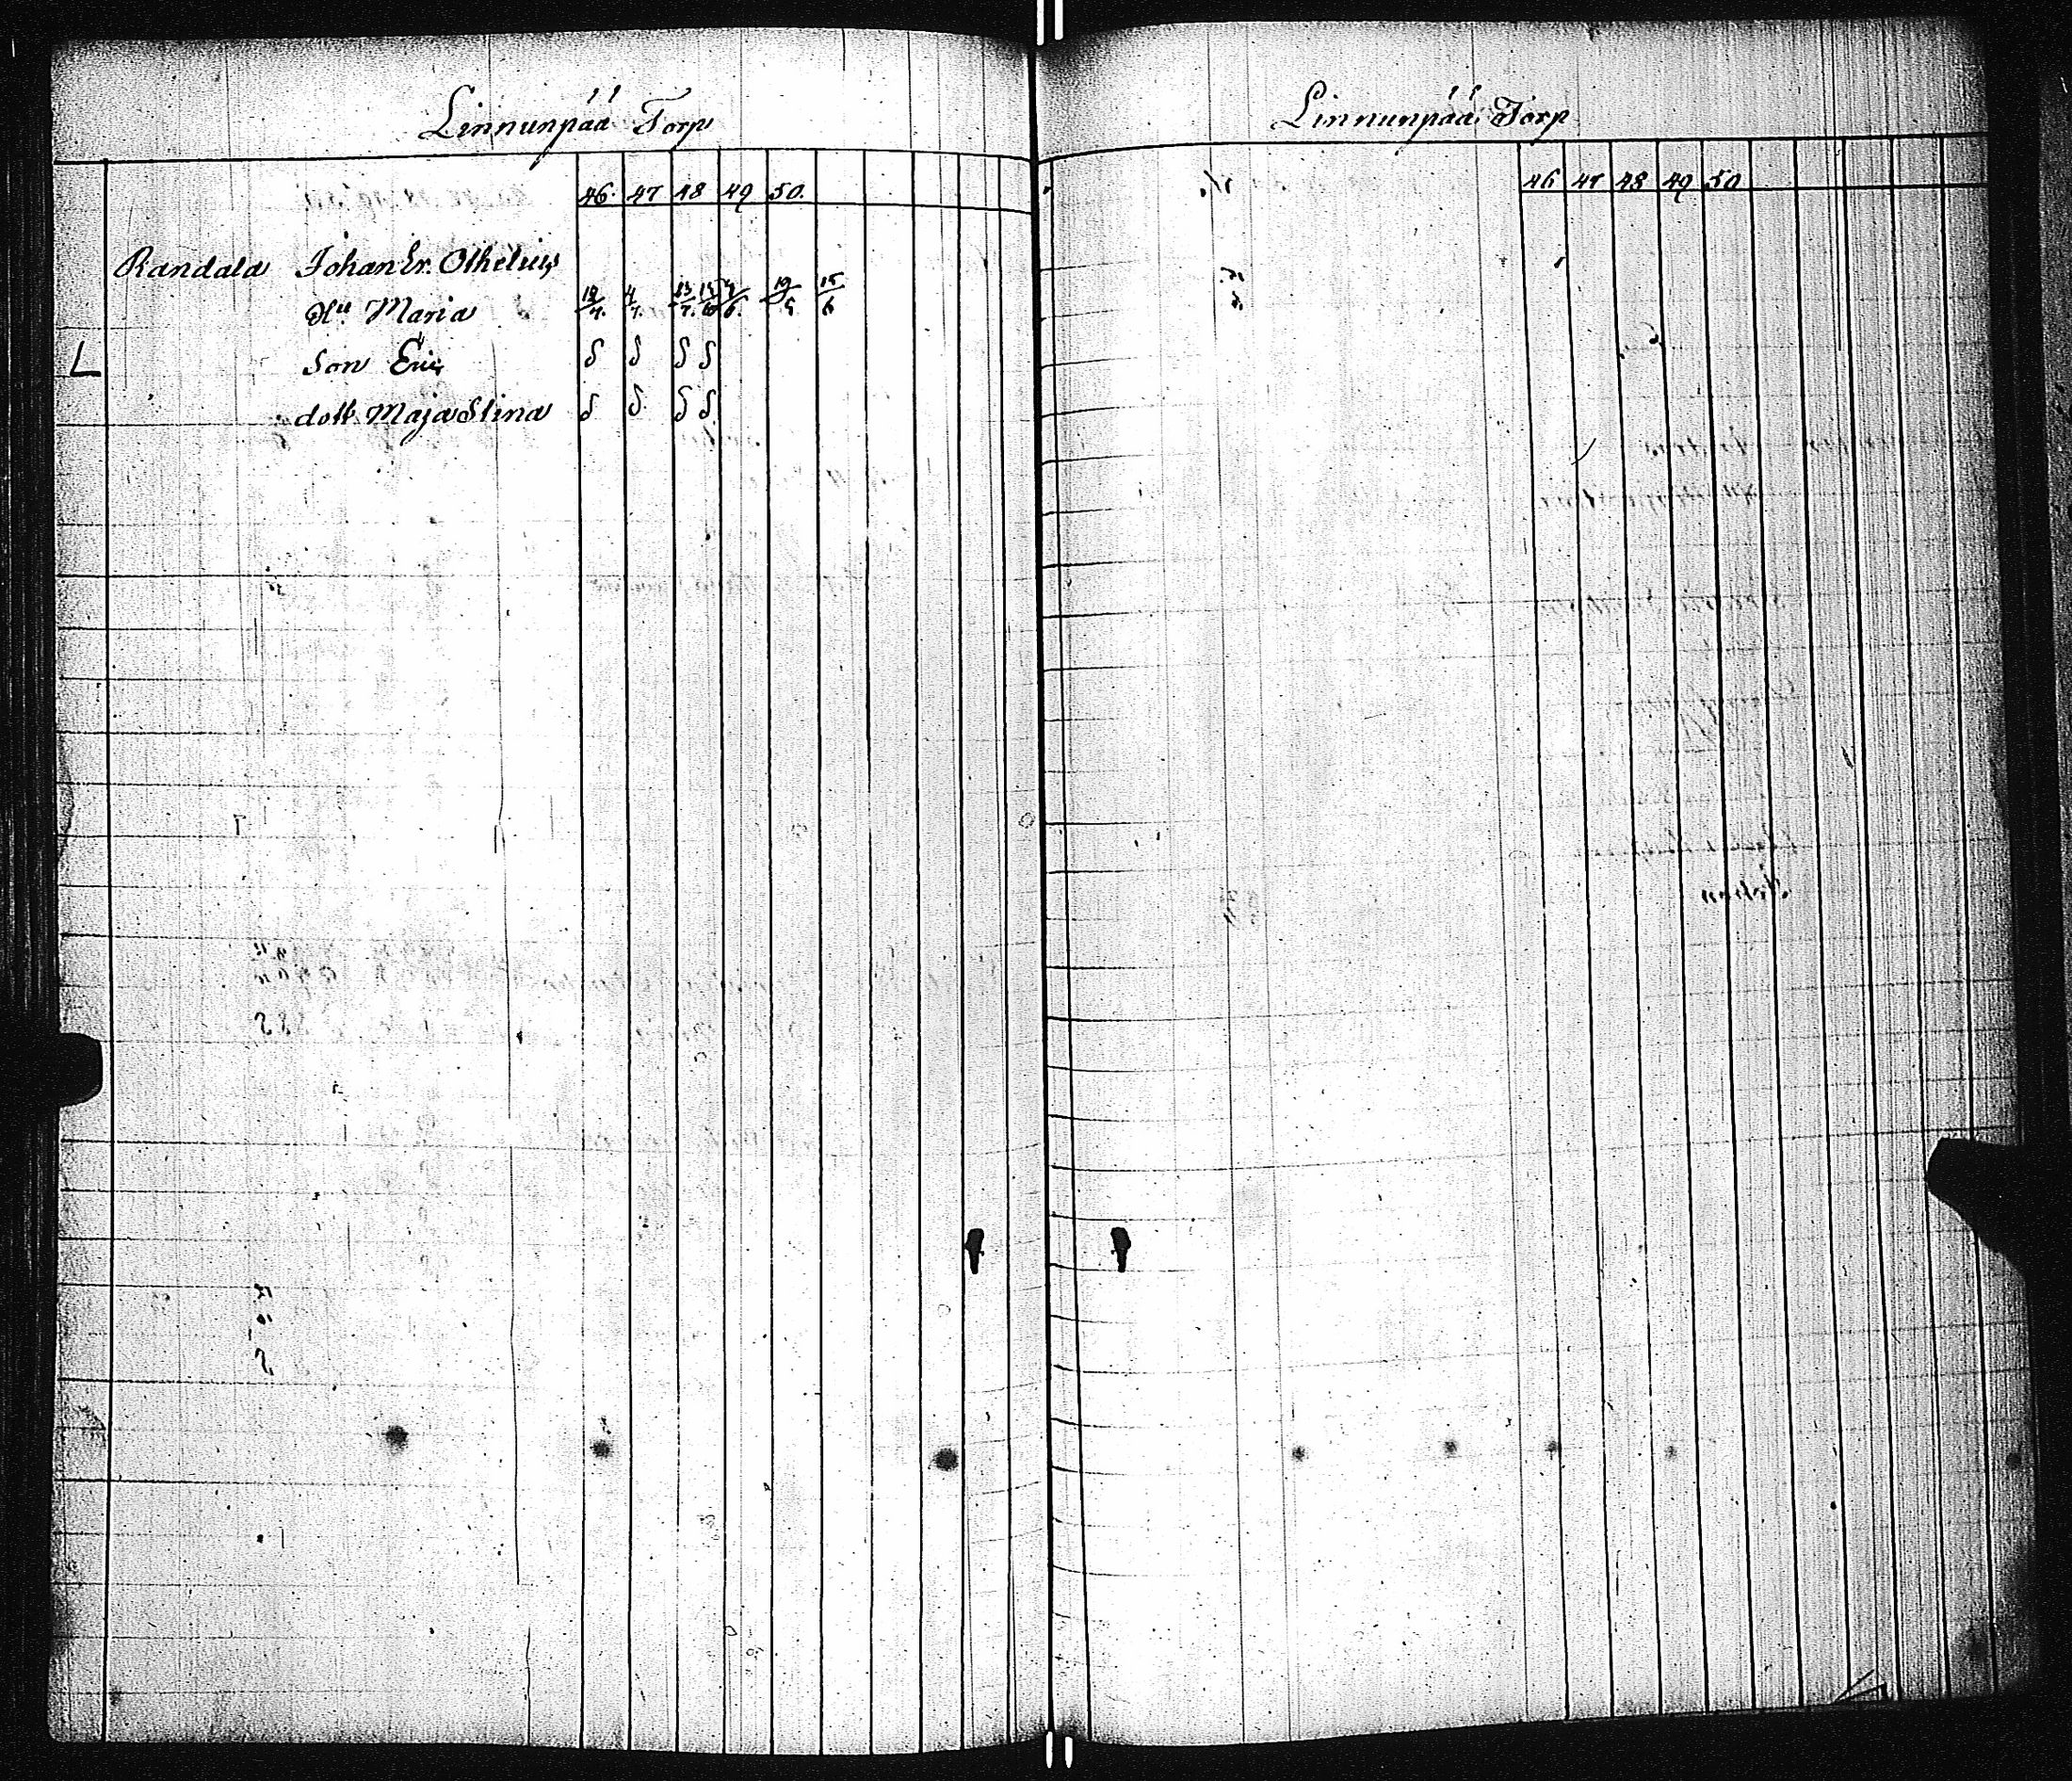 Linnunpää Torp
46. 47 48 49 50.
Randala Johan Er. Othelius
Hu. Maria 12/7. 4/7. 13/7. 19/5 15/6
L Son Eric S S S S
dott. Maja Stina S S S S
Linnunpää Torp
46 47 48 49 50